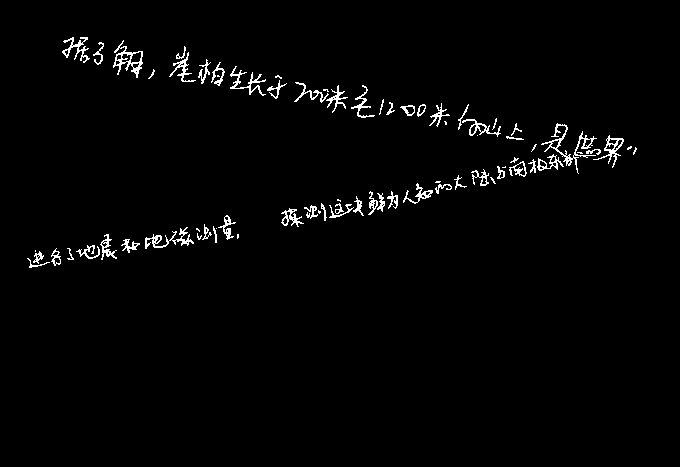 据了解，崖柏生长于700米至1200米的山上，是世界..
进行了地震和地磁测量, 探测这块鲜为人知的大陆与南极东部